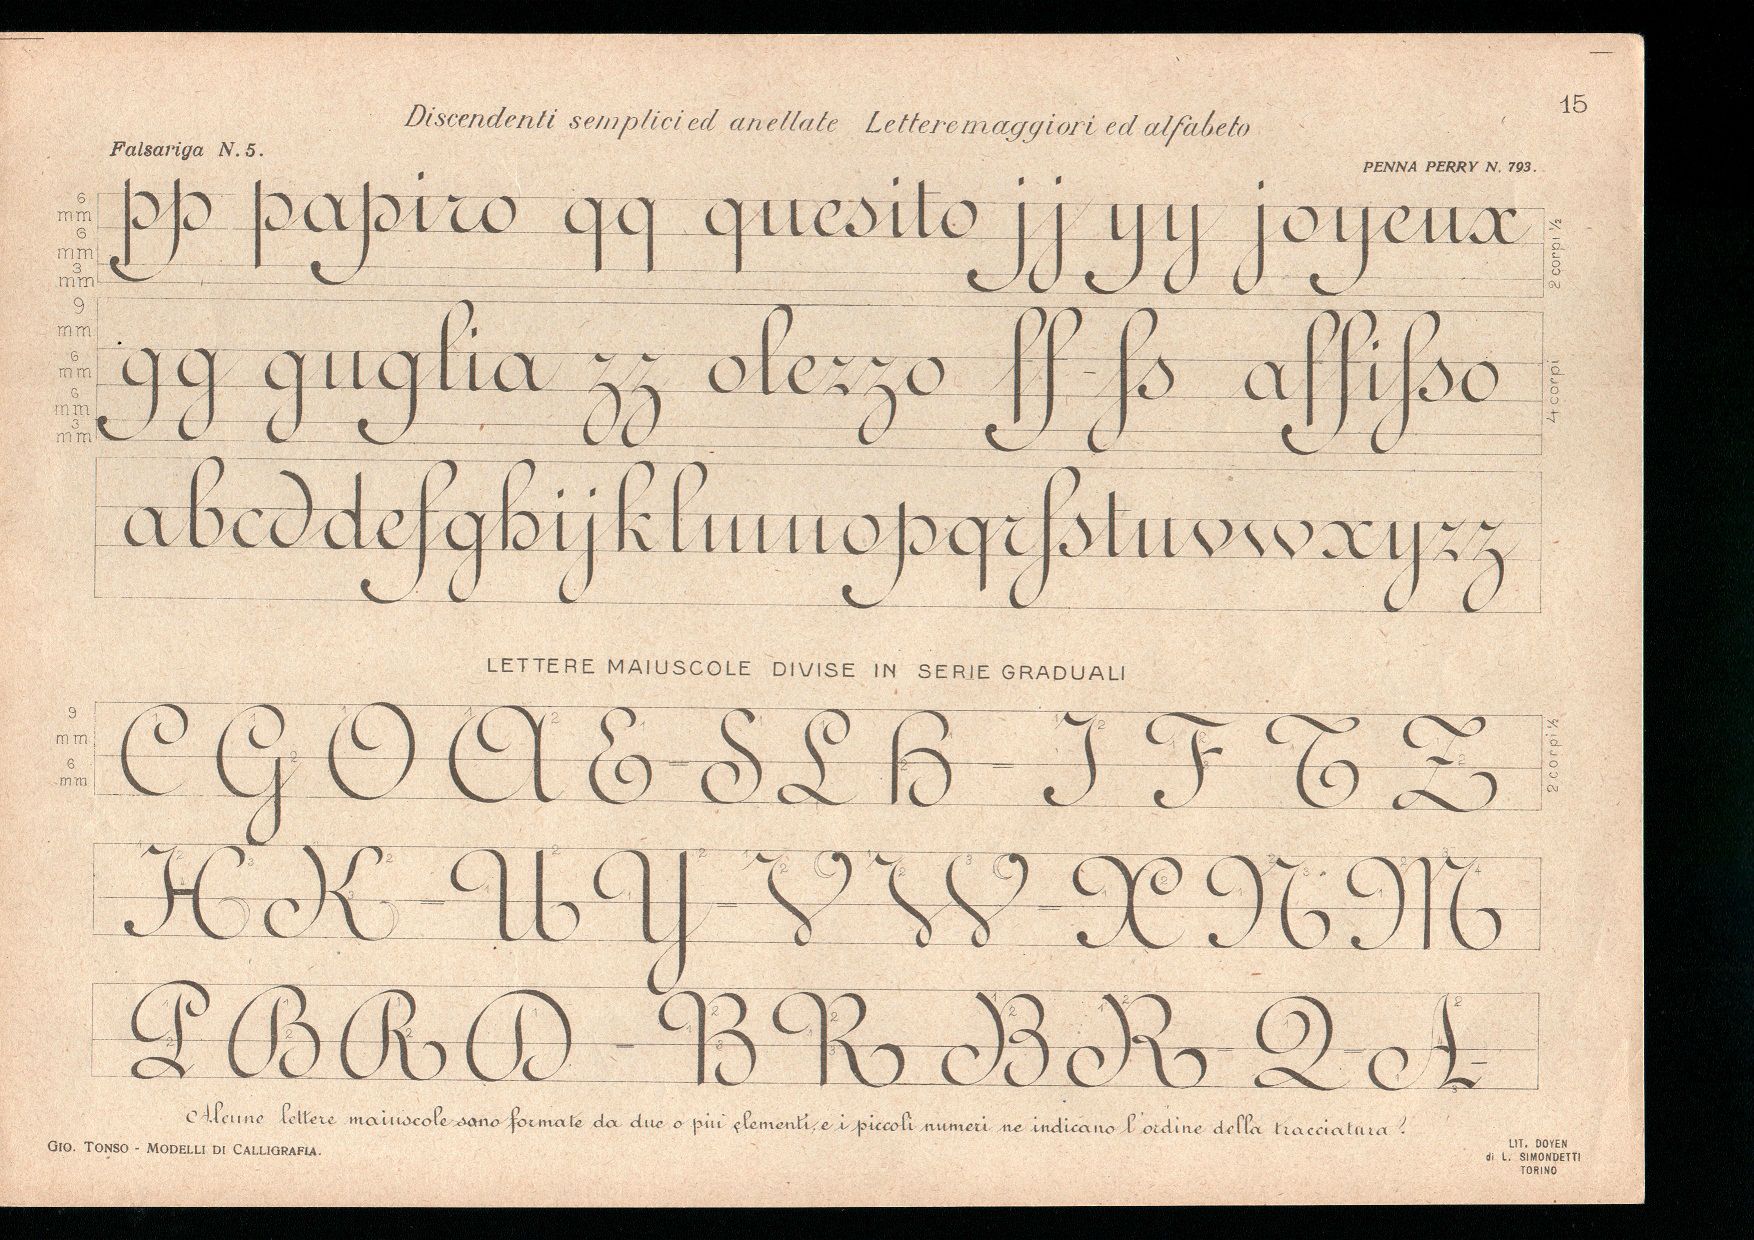 15
Discendenti semplici ed anellate Lettere maggiori ed alfabeto
Falsariga N. 5.
PENNA PERRY N. 793.
6 mm 6 mm 3 mm
pp papiro qq quesito jj yy joyeux
2 corpi ½
9 mm 6 mm 6 mm 3 mm
gg guglia zz olezzo ff - ſs affiſso
4 corpi
abcddefghijklmnopqrſstuvwxyzz
LETTERE MAIUSCOLE DIVISE IN SERIE GRADUALI
9 mm 6 mm
C G O A E = S L H = I F T Z
2 corpi ½
H K = U Y = V W = X N M
P B R D - B R = B R - Q - A
Alcune lettere maiuscole sono formate da due o più elementi, e i piccoli numeri ne indicano l'ordine della tracciatura!
GIO. TONSO - MODELLI DI CALLIGRAFIA.
LIT. DOYEN
di L. SIMONDETTI
TORINO